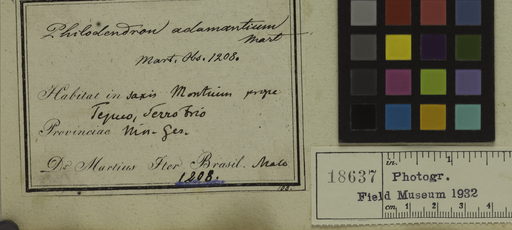 Philodendron adamantinum
Mart
Mart. Obs. 1208.
Habitat in saxis Montium prope
Tejuco, Serro Frio
Provinciae Min. Ger.
Dr Martius Iter Brasil. Maio
1208.
in. 1
18637 Photogr.
Field Museum 1932
cm. 1 2 3 4